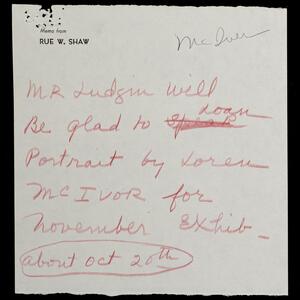 Memo from
RUE W. SHAW
McIver
MR Ludgin will
Be glad to speak loan
Portrait by Loren
McIvor for
November Exhib_
about oct 20th